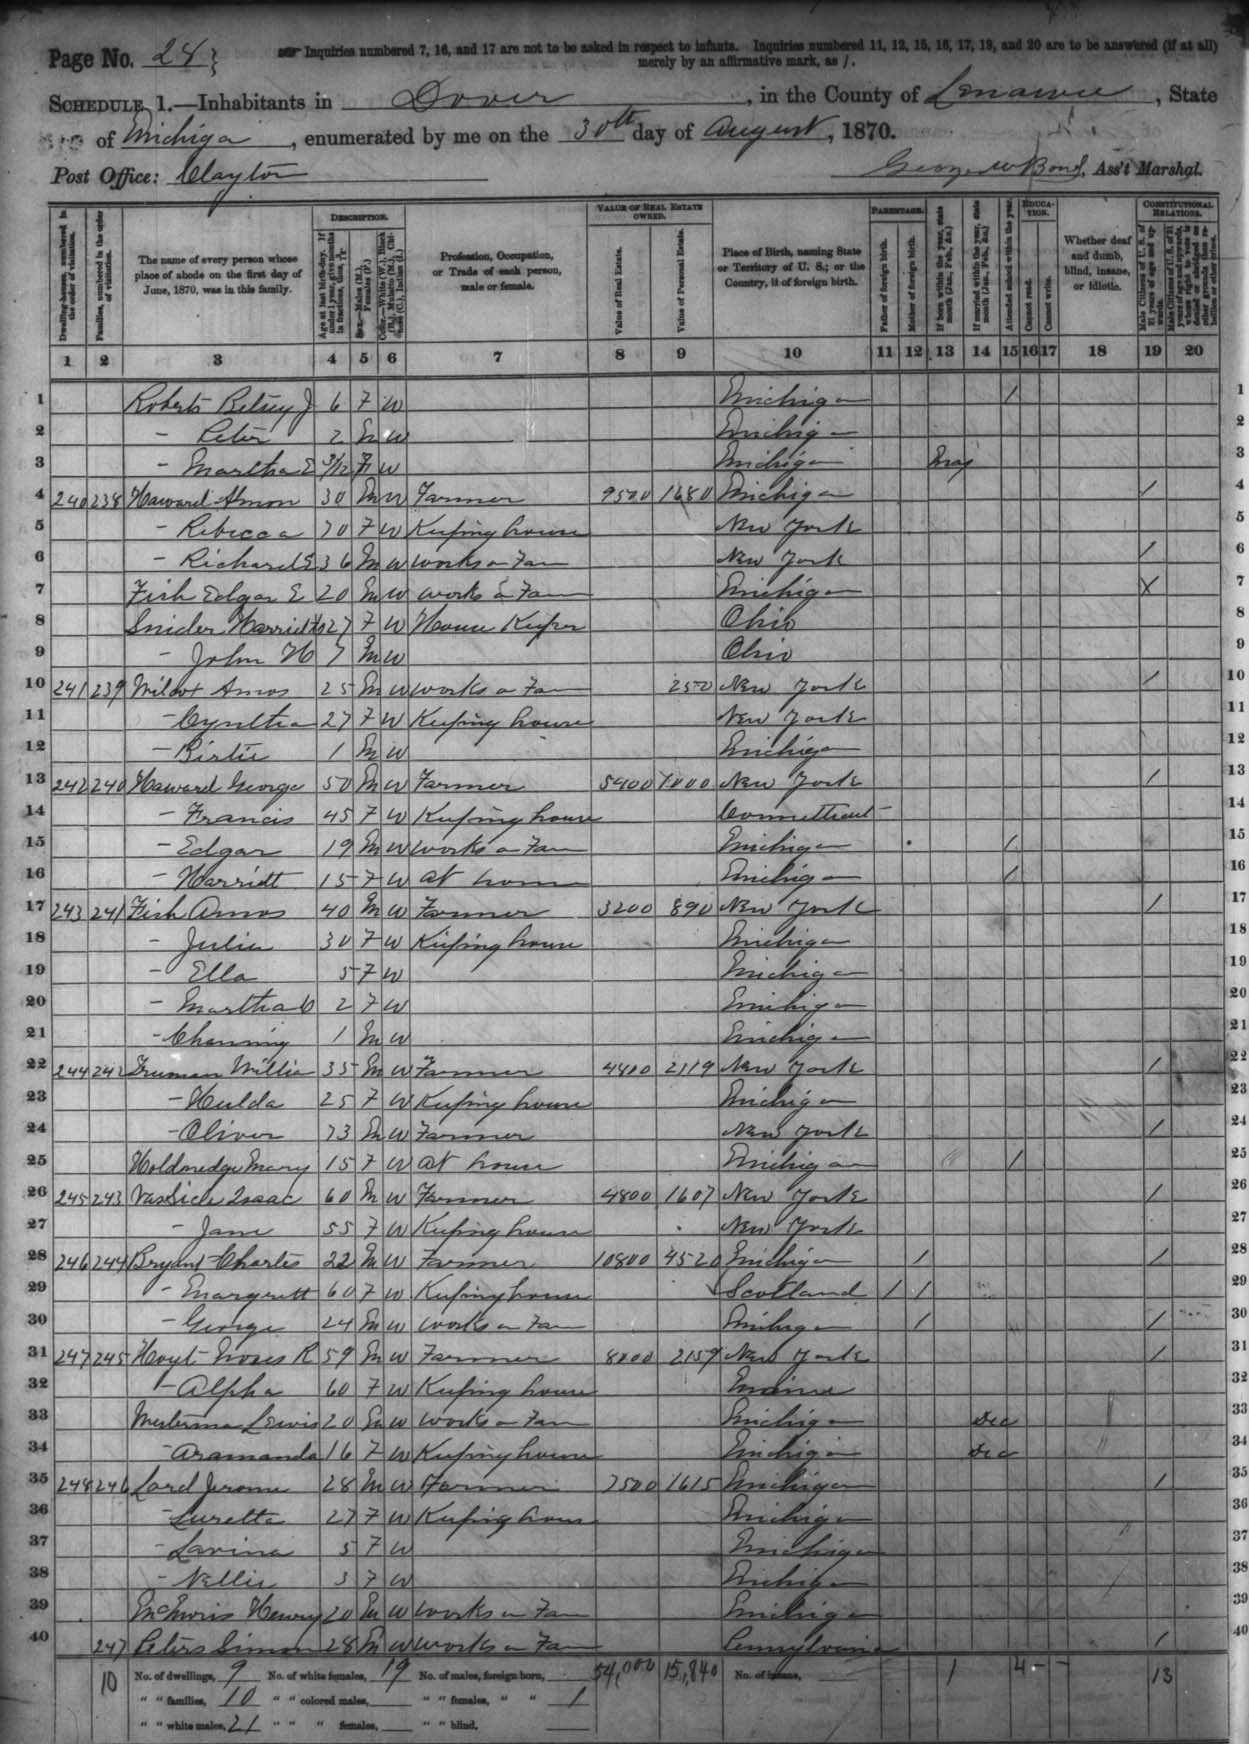 Page No. 28
Inquiries numbered 7, 16, and 17 are not to be asked in respect to infants. Inquiries numbered 11, 12, 15, 16, 17, 19, and 20 are to be answered (if at all)
merely by an affirmative mark, as /.
SCHEDULE 1.—Inhabitants in Dover, in the County of Lenawee, State
of Michigan, enumerated by me on the 30th day of August, 1870.
Post Office: Clayton
George W Bond, Ass't Marshal.
Dwelling-houses, numbered in the order of visitation.
Families, numbered in the order of visitation.
The name of every person whose place of abode on the first day of June, 1870, was in this family.
DESCRIPTION.
Age at last birth-day. If under 1 year, give months in fractions, thus, 3/12
Sex.—Males (M.), Females (F.)
Color.—White (W.), Black (B.), Mulatto (M.), Chinese (C.), Indian (I.)
Profession, Occupation, or Trade of each person, male or female.
VALUE OF REAL ESTATE OWNED.
Value of Real Estate.
Value of Personal Estate.
Place of Birth, naming State or Territory of U. S.; or the Country, if of foreign birth.
PARENTAGE.
Father of foreign birth.
Mother of foreign birth.
If born within the year, state month (Jan., Feb., &c.)
If married within the year, state month (Jan., Feb., &c.)
EDUCATION.
Attended school within the year.
Cannot read.
Cannot write.
Whether deaf and dumb, blind, insane, or idiotic.
CONSTITUTIONAL RELATIONS.
Male Citizens of U. S. of 21 years of age and upwards.
Male Citizens of U. S. of 21 years of age and upwards, whose right to vote is denied or abridged on other grounds than rebellion or other crime.
1 2 3 4 5 6 7 8 9 10 11 12 13 14 15 16 17 18 19 20
1 Roberts Betsey J 6 F W Michigan / 1
2 – Peter 2 M W Michigan 2
3 – Martha E 3/12 F W Michigan May 3
4 240 238 Haward Amon 30 M W Farmer 9500 1680 Michigan / 4
5 – Rebecca 70 F W Keeping house New York 5
6 – Richard E 36 M W works on Farm New York / 6
7 Fish Edgar E 20 M W works on Farm Michigan X 7
8 Snider Harriett 27 F W House Keeper Ohio 8
9 – John H 7 M W Ohio 9
10 241 239 Wilcox Amos 25 M W works on Farm 250 New York / 10
11 – Cynthia 27 F W Keeping house New York 11
12 – Birtie 1 M W Michigan 12
13 242 240 Haward George 50 M W Farmer 5400 1000 New York / 13
14 – Francis 45 F W Keeping house Connetticut 14
15 – Edgar 19 M W works on Farm Michigan / 15
16 – Harriett 15 F W at home Michigan / 16
17 243 241 Fish Amos 40 M W Farmer 3200 890 New York / 17
18 – Julia 30 F W Keeping house Michigan 18
19 – Ella 5 F W Michigan 19
20 – Martha 2 F W Michigan 20
21 – Channing 1 M W Michigan 21
22 244 242 Truman William 35 M W Farmer 4800 2119 New York / 22
23 – Hulda 25 F W Keeping house Michigan 23
24 – Oliver 73 M W Farmer New York / 24
25 Holdmedge Mary 15 F W at home Michigan / 25
26 245 243 VanSicle Isaac 60 M W Farmer 4800 1607 New York / 26
27 – Jane 55 F W Keeping house New York 27
28 246 244 Bryant Charles 22 M W Farmer 10800 4520 Michigan / / 28
29 – Margrett 60 F W Keeping house Scotland / / 29
30 – George 24 M W works on Farm Michigan / / 30
31 247 245 Hoyt Moses R 59 M W Farmer 8000 2159 New York / 31
32 – Alpha 60 F W Keeping house Maine 32
33 Lewis 20 M W works on Farm Michigan Dec 33
34 – Aramanda 16 F W Keeping house Michigan Dec 34
35 248 246 Lard Jerome 28 M W Farmer 7500 1615 Michigan / 35
36 – Luretta 27 F W Keeping house Michigan 36
37 – Lavina 5 F W Michigan 37
38 – Nellie 3 F W Michigan 38
39 Henry 20 M W works on Farm Michigan 39
40 247 Peters Simon 28 M W works on Farm Pennsylvania / 40
10 No. of dwellings, 9 No. of white females, 19 No. of males, foreign born, 54,000 15,840 No. of insane, 1 4 – – 13
" " families, 10 " " colored males, " " females, " " 1
" " white males, 21 " " " females, " " blind,